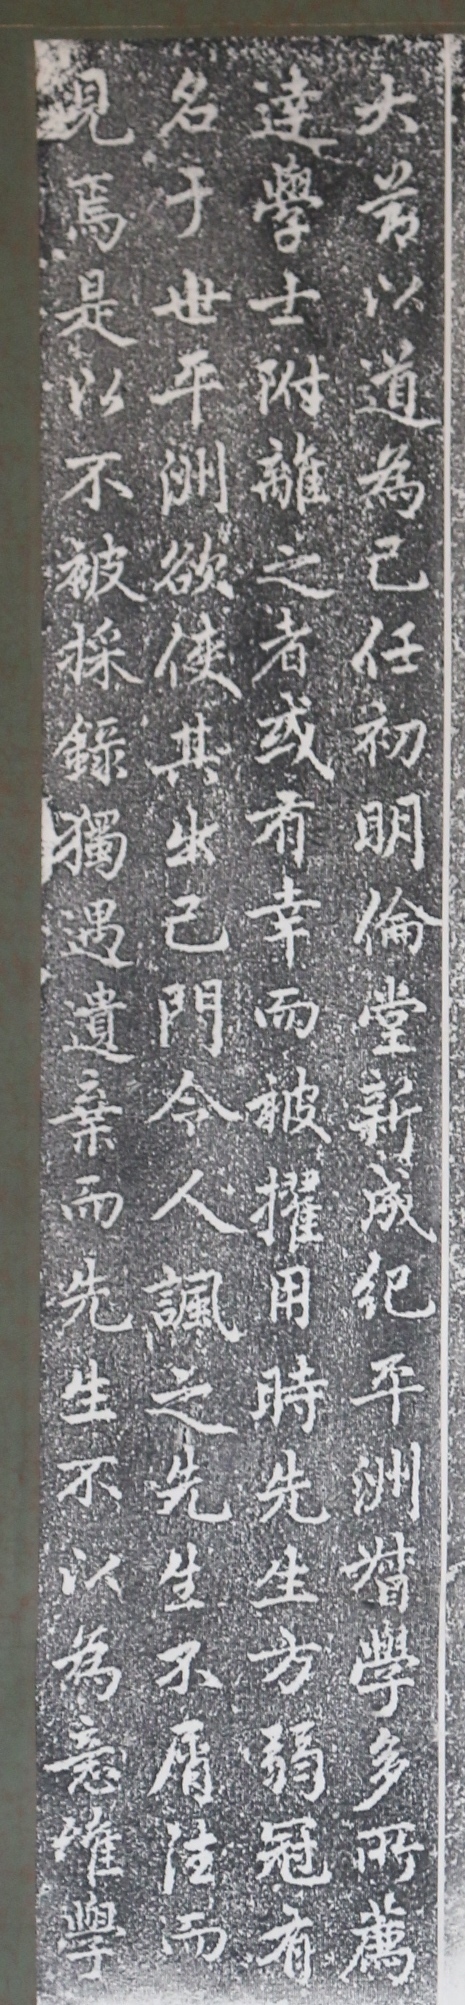 大著以道為己任初明倫堂新成紀平洲督學多所薦
達學士附離之者或有幸而被擢用時先生方弱冠有
名于世平洲欲使其出己門令人諷之先生不屑往而
見焉是以不被採錄獨遇遺棄而先生不以為意唯學